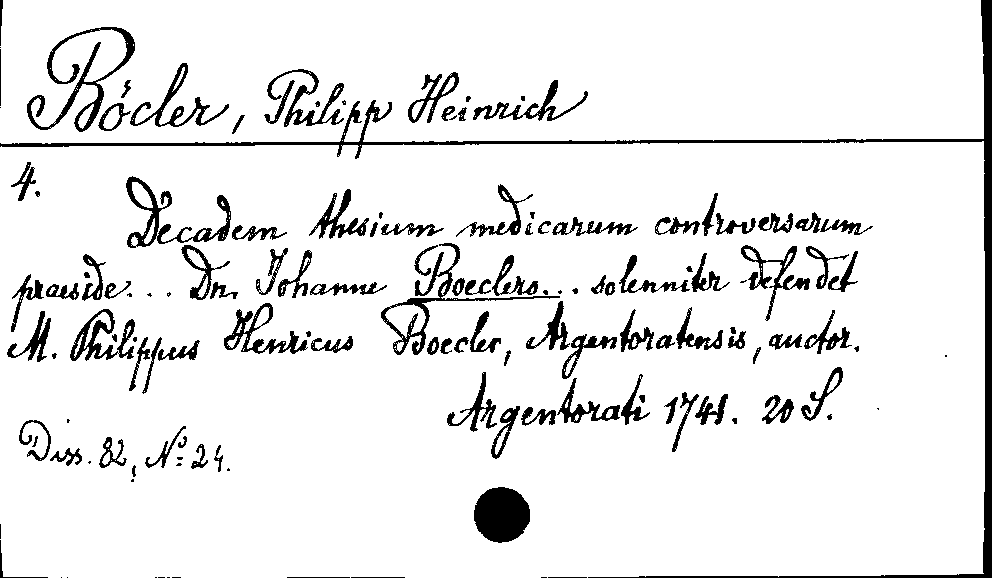 Böcler, Philipp Heinrich
4.
Decadem thesium medicarum controversarum
praeside... Dn. Johanne Boeclero... solenniter defendet
M. Philippus Henricus Boecler, Argentoratensis, auctor.
Argentorati 1741. 20 S.
Diss. 82, No 24.